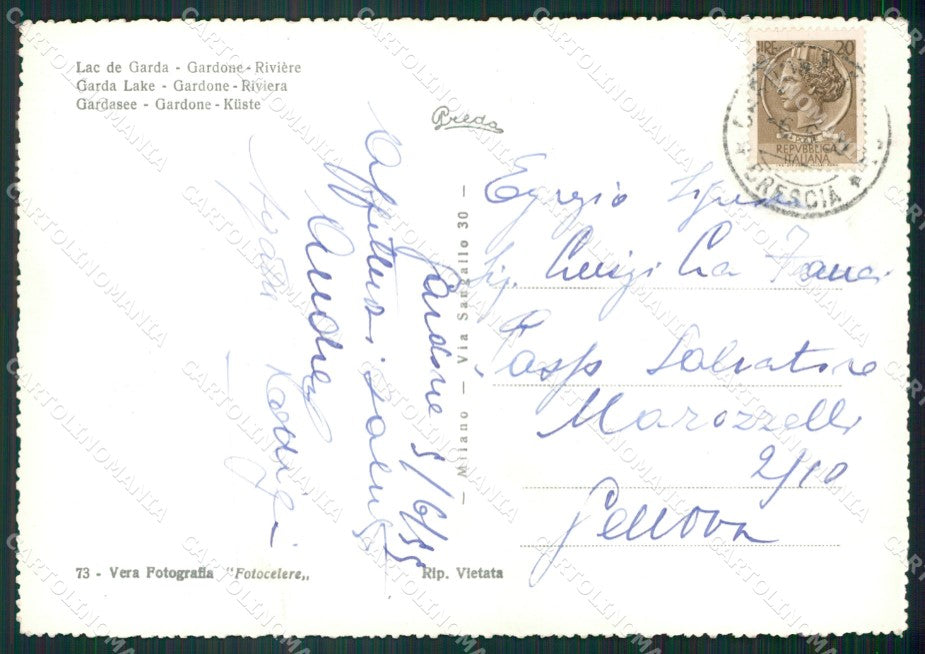 Lac de Garda - Gardone-Rivière
Garda Lake - Gardone-Riviera
Gardasee - Gardone-Küste
Breda
LIRE 20
REPVBBLICA
ITALIANA
BRESCIA
Gardone 5/6/55
Affettuosi saluti
Andrea
— Milano — Via Sangallo 30 —
Egregio Signore
Sig. Luigi La
Pass Salvatore
Marozzelli
2/10
Genova
73 - Vera Fotografia "Fotocelere„
Rip. Vietata
CARTOLINOMANIA